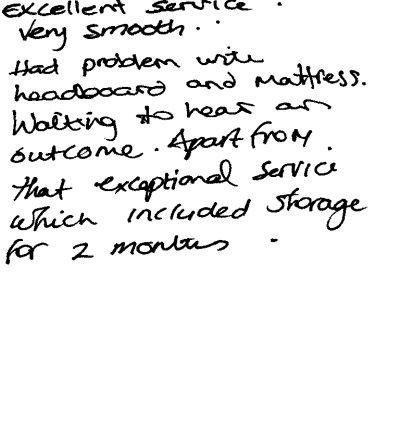 Excellent service.
very smooth..
Had problem with
headboard and mattress.
Waiting to hear an
outcome. Apart from.
that exceptional service
which included storage
for 2 months.